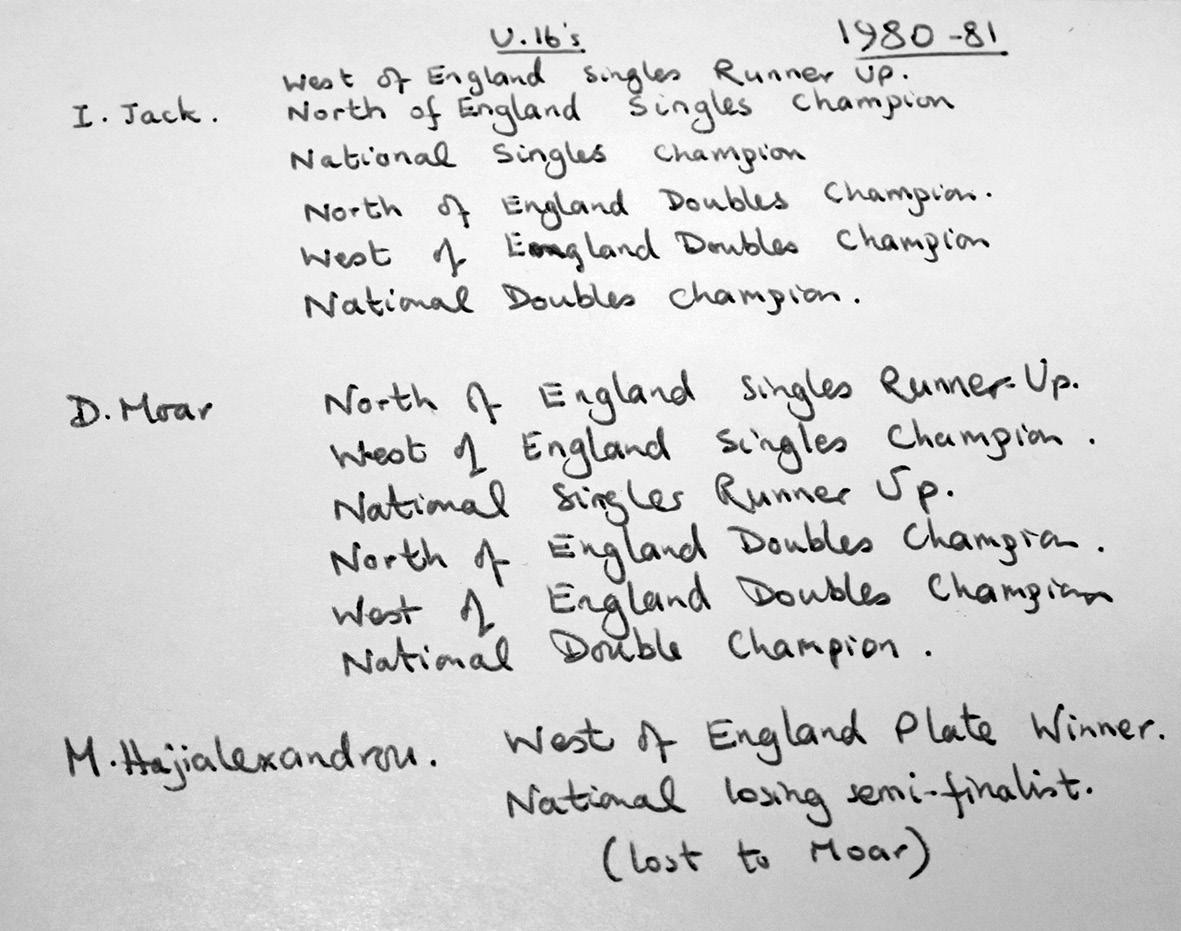 U.16's 1980-81
West of England Singles Runner Up.
I. Jack. North of England Singles Champion
National Singles Champion
North of England Doubles Champion.
West of England Doubles Champion
National Doubles Champion.
D. Moar North of England Singles Runner-Up.
West of England Singles Champion.
National Singles Runner Up.
North of England Doubles Champion.
West of England Doubles Champion
National Double Champion.
M. Hajialexandrou. West of England Plate Winner.
National losing semi-finalist.
(lost to Moar)